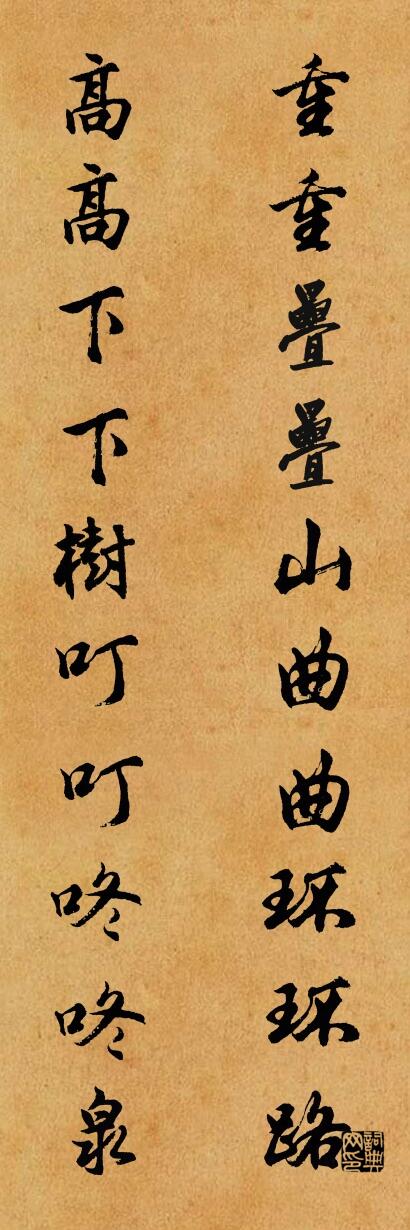 重重疊疊山曲曲环环路
高高下下樹叮叮咚咚泉
詞典网印